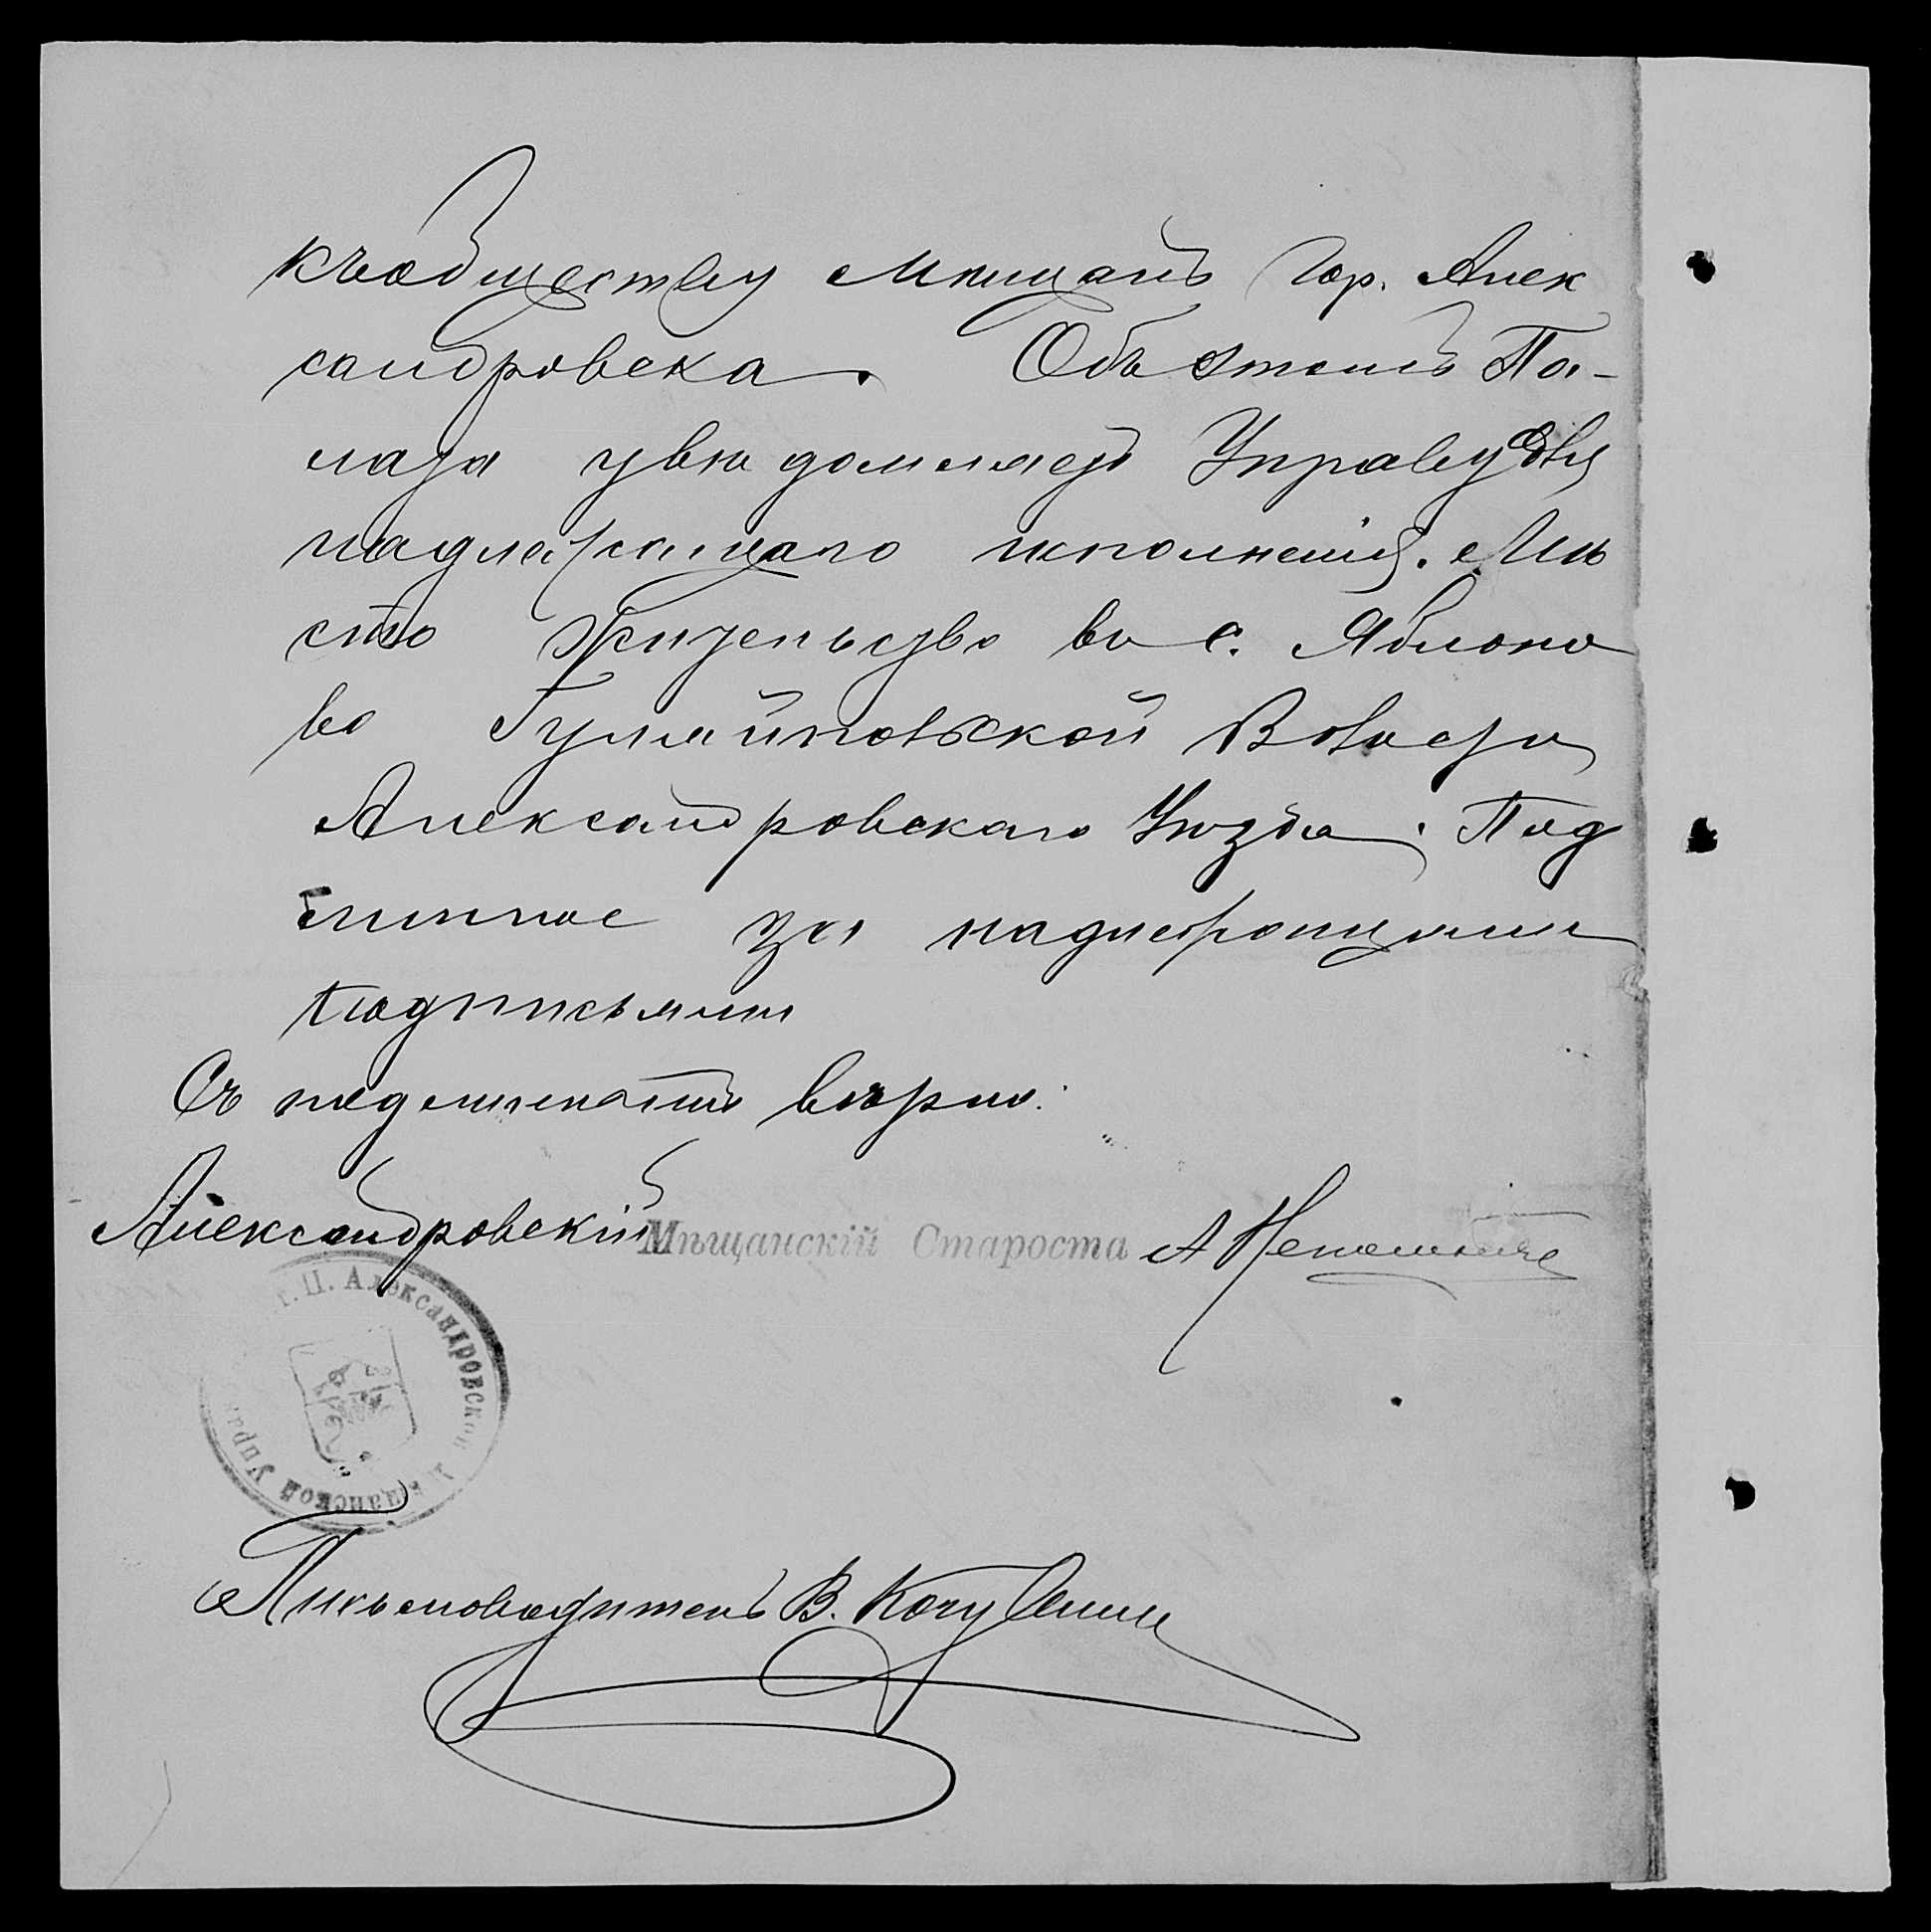 къ обществу Мѣщанъ гор. Алек
сандровска. Объ этомъ Па-
лата увѣдомляетъ Управу для
надлежащаго исполненія. Мѣ
сто жительство въ с. Яблоко
во Гуляйпольской Волости
Александровскаго Уѣзда. Под
линное за надлежащими
подписями
Съ подлиннымъ вѣрно:
Александровскій Мѣщанскій Староста А
г. П. Александровской Мѣщанской Упра
Письмоводитель В.